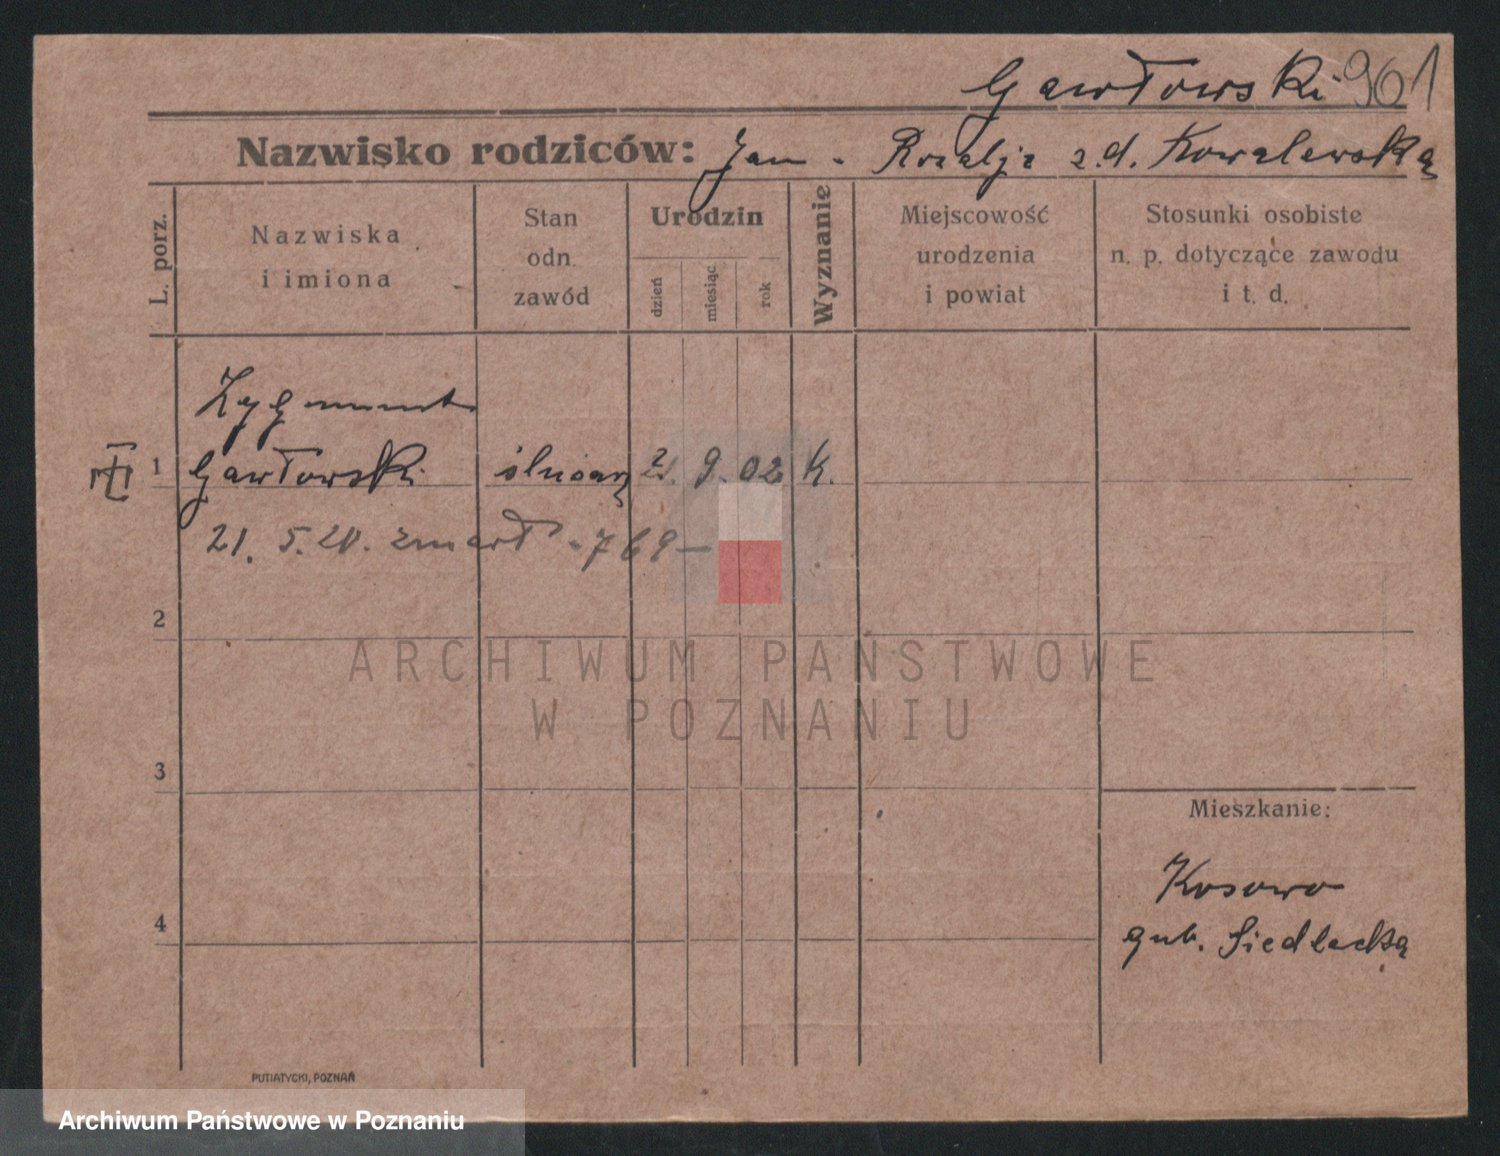 Gawłowski 961
Nazwisko rodziców: Jan - Rozalja z.d. Kowalewską
L. porz.
Nazwiska i imiona
Stan odn. zawód
Urodzin
dzień
miesiąc
rok
Wyznanie
Miejscowość urodzenia i powiat
Stosunki osobiste n. p. dotyczące zawodu i t. d.
Zygmunt
1 Gawłowski ślusarz 21. 9. 02 k.
21. 5. 20. zmarł - 769 -
2
ARCHIWUM PAŃSTWOWE
W POZNANIU
3
Mieszkanie:
Kosowo
4
gub. Siedlecką
PUTIATYCKI, POZNAŃ
Archiwum Państwowe w Poznaniu